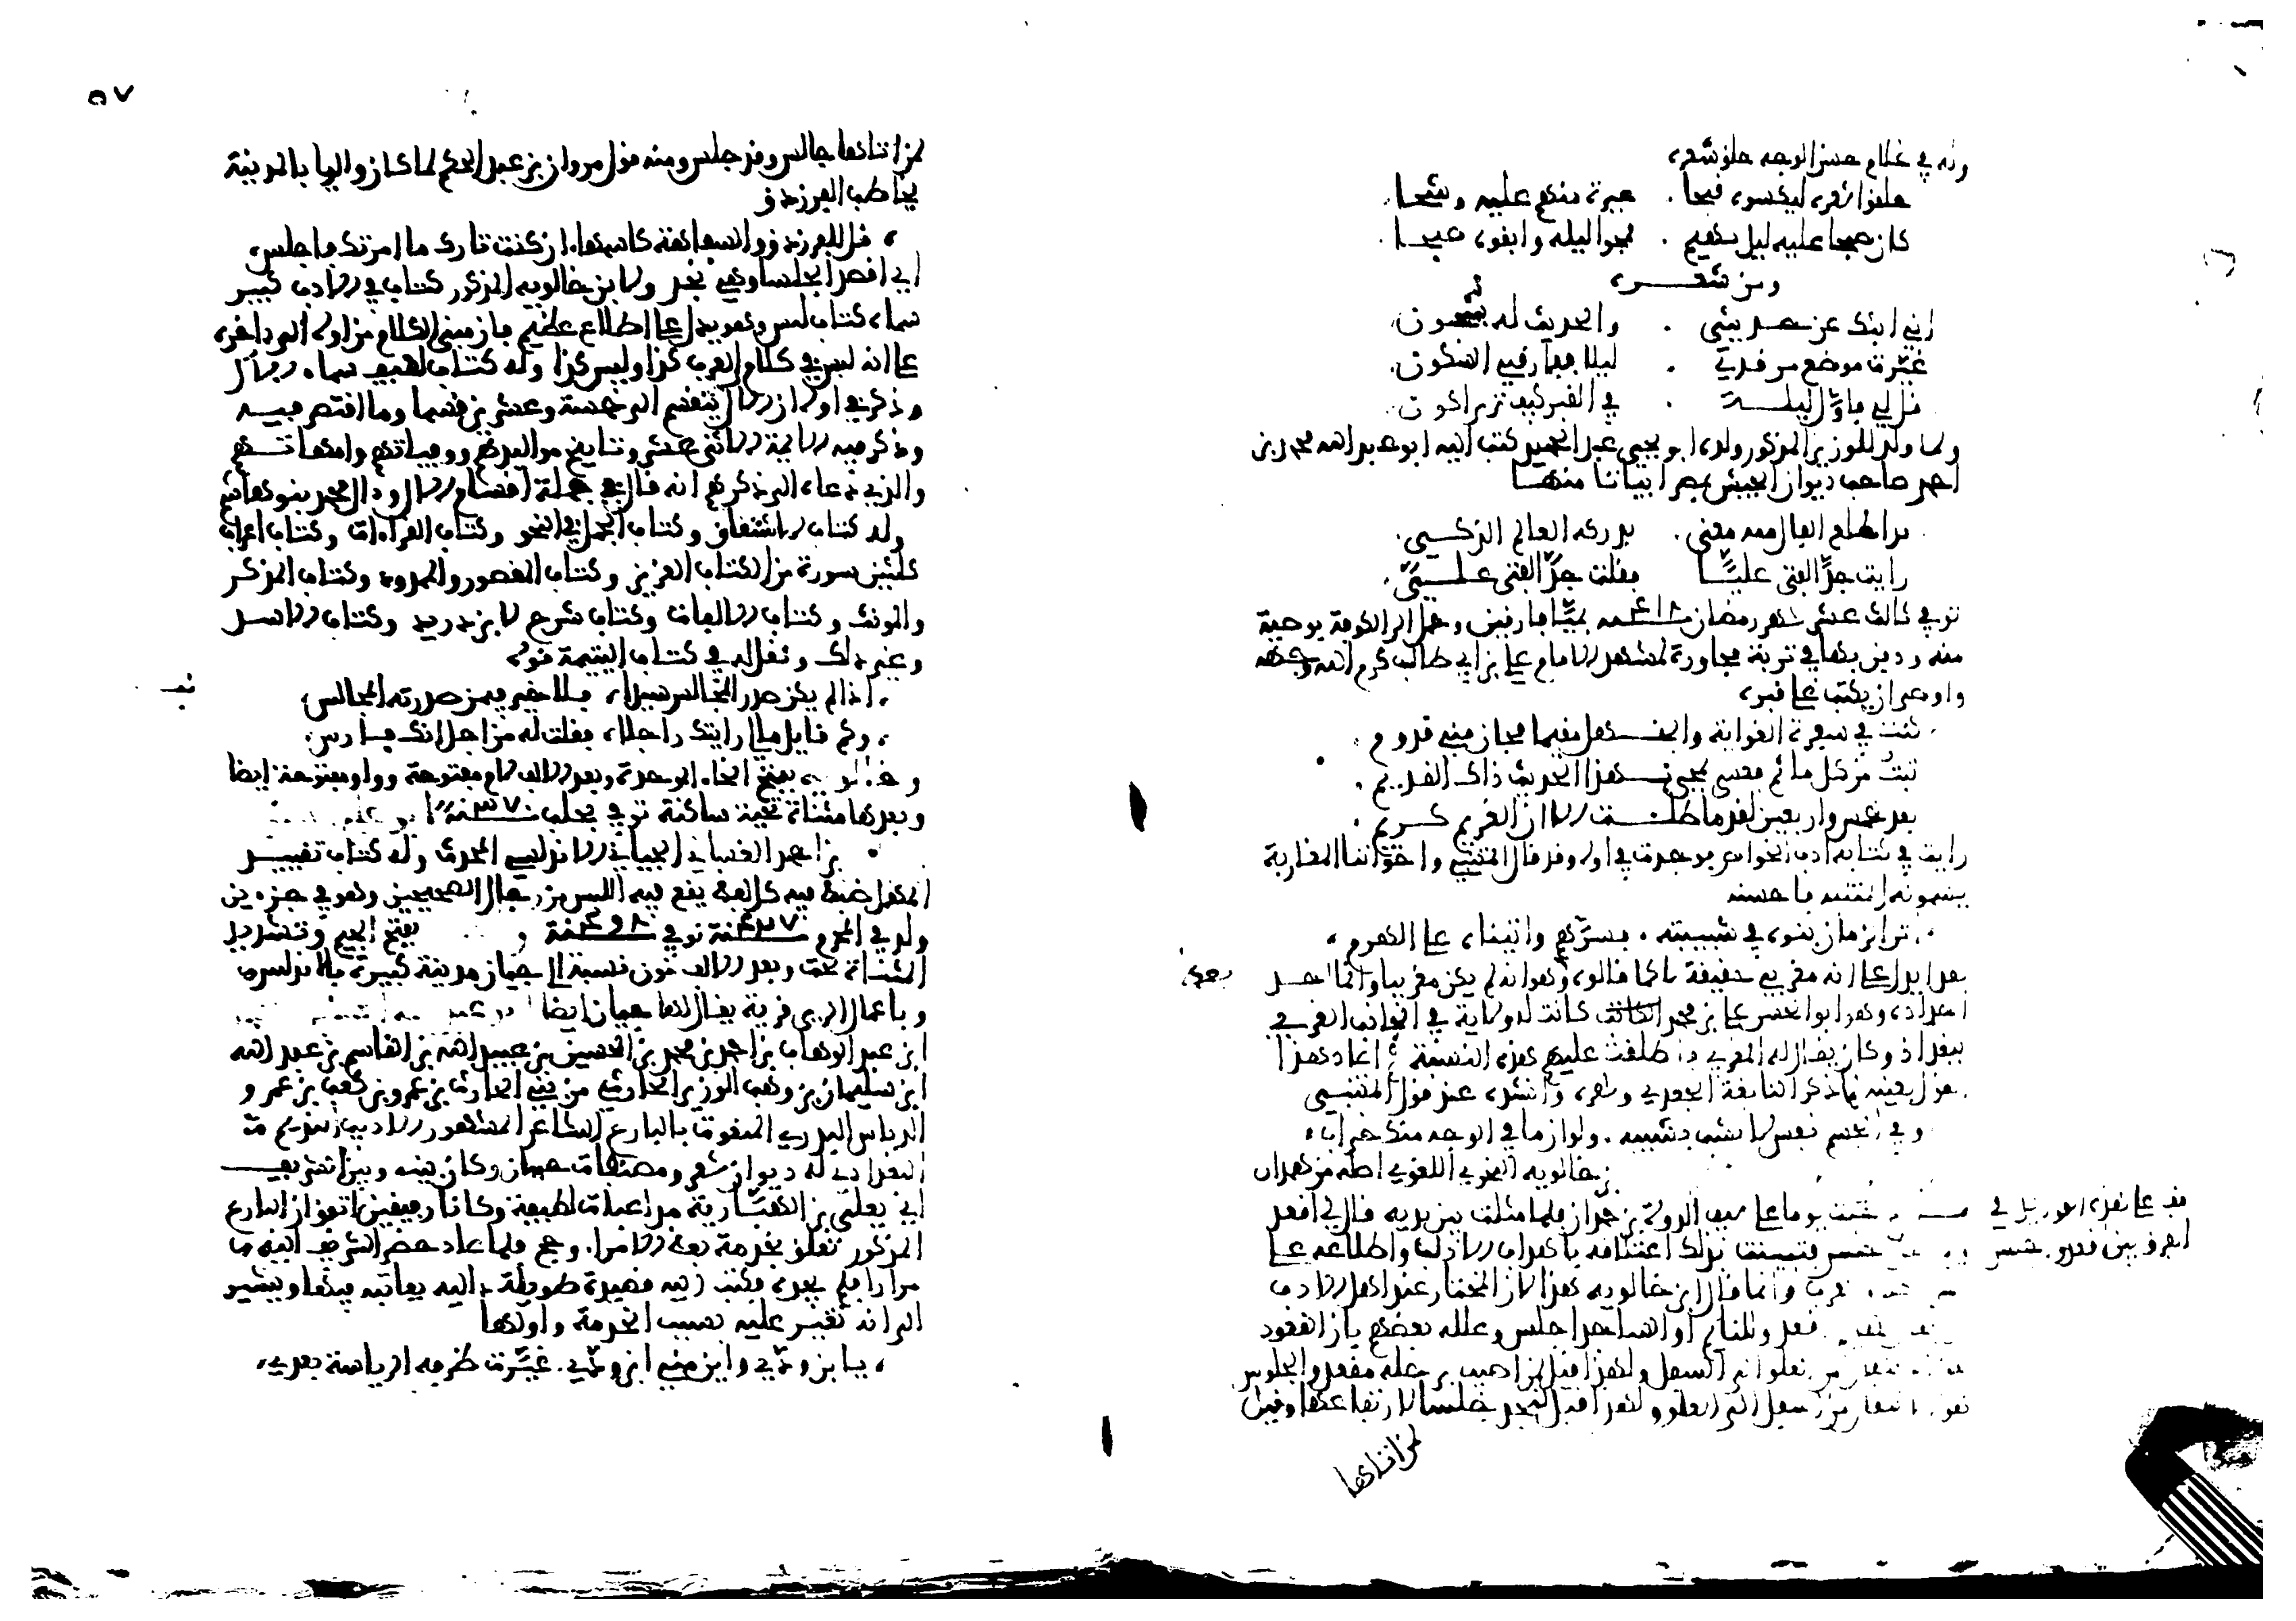 وله في غلام حسن الوجه حلق شعره
حلقوا شعره ليكسوه قبحا . غيرة منهم عليه وشحا .
كان صبحا عليه ليل بهيم . فمحوا ليله وابقوه صبحا .
ومن شعره
اني ابثك عن حديثي . والحديث له شجون
غيرت موضع مرقدي . ليلا ففارقني السكون
قل لي فاول ليلة . في القبر كيف تراني اكون
ولما ولد للوزير المذكور ولده ابو يحيى عبد الحميد كتب اليه ابو عبد الله محمد بن
احمد صاحب ديوان الجيش بمصر ابياتا منها
قد اطلع الفال منه معنى . يدركه العالم الذكي
رايت جد الفتى عليا فقلت جد الفتى علي
توفي ثالث عشر شهر رمضان سنة ٤١٨ بميافارقين وحمل الى الكوفة بوصية
منه ودفن بها في تربة مجاورة لمشهد الامام علي بن ابي طالب كرم الله وجهه
واوصى ان يكتب على قبره
كنت في سفرة الغواية والجهل مقيما فحان مني قدوم
تبت من كل ماثم فعسى يمحى بهذا الحديث ذاك القديم
بعد خمس واربعين لقد ماطلت الا ان الغريم كريم
رايت في كتابه ادب الخواص فوجدت في اوله وقد قال المتنبي واخواننا المغاربة
يسمونه المتنبه فاحسن
اتى الزمان بنوه في شبيبته . فسرهم واتيناه على الهرم .
فهذا يدل على انه مغربي حقيقة لا كما قالوه وهو انه لم يكن مغربيا وانما احد
اجداده وهو ابو الحسن علي بن محمد كانت له ولاية في الجانب الغربي
ببغداذ وكان يقال له المغربي فاطلقت عليهم هذه النسبة ثم اعاد هذا
القول بعينه لما ذكر النابغة الجعدي وشعره وانشد عند قول المتنبي
وفي الجسم نفس لا تشيب بشيبه . ولو ان ما في الوجه منه حراب
بن خالويه النحوي اللغوي اصله من همدان
دخلت يوما على سيف الدولة بن حمدان فلما مثلت بين يديه قال لي اقعد
قف على نقل في
الفرق بين قعد وجلس
ولم يقل اجلس فتبينت بذلك اعتلاقه باهداب الادب واطلاعه على
كلام العرب وانما قال ابن خالويه هذا لان المختار عند اهل الادب
ان يقال للقائم اقعد وللنائم او الساجد اجلس وعلله بعضهم بان القعود
هو الانتقال من العلو الى السفل ولهذا قيل لمن اصيب برجله مقعد والجلوس
هو الانتقال من السفل الى العلو ولهذا قيل لنجد جلسا لارتفاعها وقيل
لمن اتاها
٥٧
لمن اتاها جالس وقد جلس ومنه قول مروان بن عبد الحكم لما كان واليا بالمدينة
يخاطب الفرزدق
قل للفرزدق والسفاهة كاسمها . ان كنت تارك ما امرتك فاجلس
اي اقصد الجلسا وهي نجد ولابن خالويه المذكور كتاب في الادب كبير
سماه كتاب ليس وهو يدل على اطلاع عظيم فان مبنى الكلام من اوله الى اخره
على انه ليس في كلام العرب كذا وليس كذا وله كتاب لطيف سماه الال
وذكر في اوله ان الال ينقسم الى خمسة وعشرين قسما وما اقتصر فيه
وذكر فيه الايمة الاثني عشر وتاريخ مواليدهم ووفياتهم وامهاتهم
والذي دعاه الى ذكرهم انه قال في جملة اقسام الال وءال محمد بنو هاشم
وله كتاب الاشتقاق وكتاب الجمل في النحو وكتاب القراءات وكتاب اعراب
ثلثين سورة من الكتاب العزيز وكتاب المقصور والممدود وكتاب المذكر
والمونث وكتاب الالفات وكتاب شرح لابن دريد وكتاب الاسد
وغير ذلك ونقل له في كتاب اليتيمة قوله
اذا لم يكن صدر المجالس سيدا . فلا خير فيمن صدرته المجالس
وكم قايل ما لي رايتك راجلا . فقلت له من اجل انك فارس
وخالويه بفتح الخاء الموحدة وبعد الالف لام مفتوحة وواو مفتوحة ايضا
وبعدها مثناة تحتية ساكنة توفي بحلب سنة ٣٧٠ ابو علي
بن احمد الغساني الجياني الاندلسي المحدث وله كتاب تقييد
المهمل ضبط فيه كل لفظ يقع فيه اللبس من رجال الصحيحين وهو في جزءين
ولد في المحرم سنة ٤٢٧ توفي سنة ٤٩٨ و بفتح الجيم وتشديد
المثناة تحت وبعد الالف نون نسبة الى جيان مدينة كبيرة بالاندلس
وباعمال الري قرية يقال لها جيان ايضا ابو عبد الله
ابن عبد الوهاب بن احمد بن محمد بن الحسين بن عبيد الله بن القاسم بن عبد الله
ابن سليمان بن وهب الوزير الحارثي من بني الحارث بن عمرو بن كعب بن عمرو
الدباس البدري المنعوت بالبارع الشاعر المشهور الاديب النديم
البغدادي له ديوان شعر ومصنفات حسان وكان بينه وبين الشريف
ابي يعلى بن الهبارية مداعبات لطيفة وكانا رفيقين اتفق ان البارع
المذكور تعلق بخدمة بعض الامرا . وحج فلما عاد حضر الشريف اليه
مرارا فلم يجده فكتب اليه قصيدة طويلة يعاتبه فيها ويشير
الى انه تغير عليه بسبب الخدمة واولها
يا ابن ودي واين مني ابن ودي . غيرت طرفه الرياسة بعدي